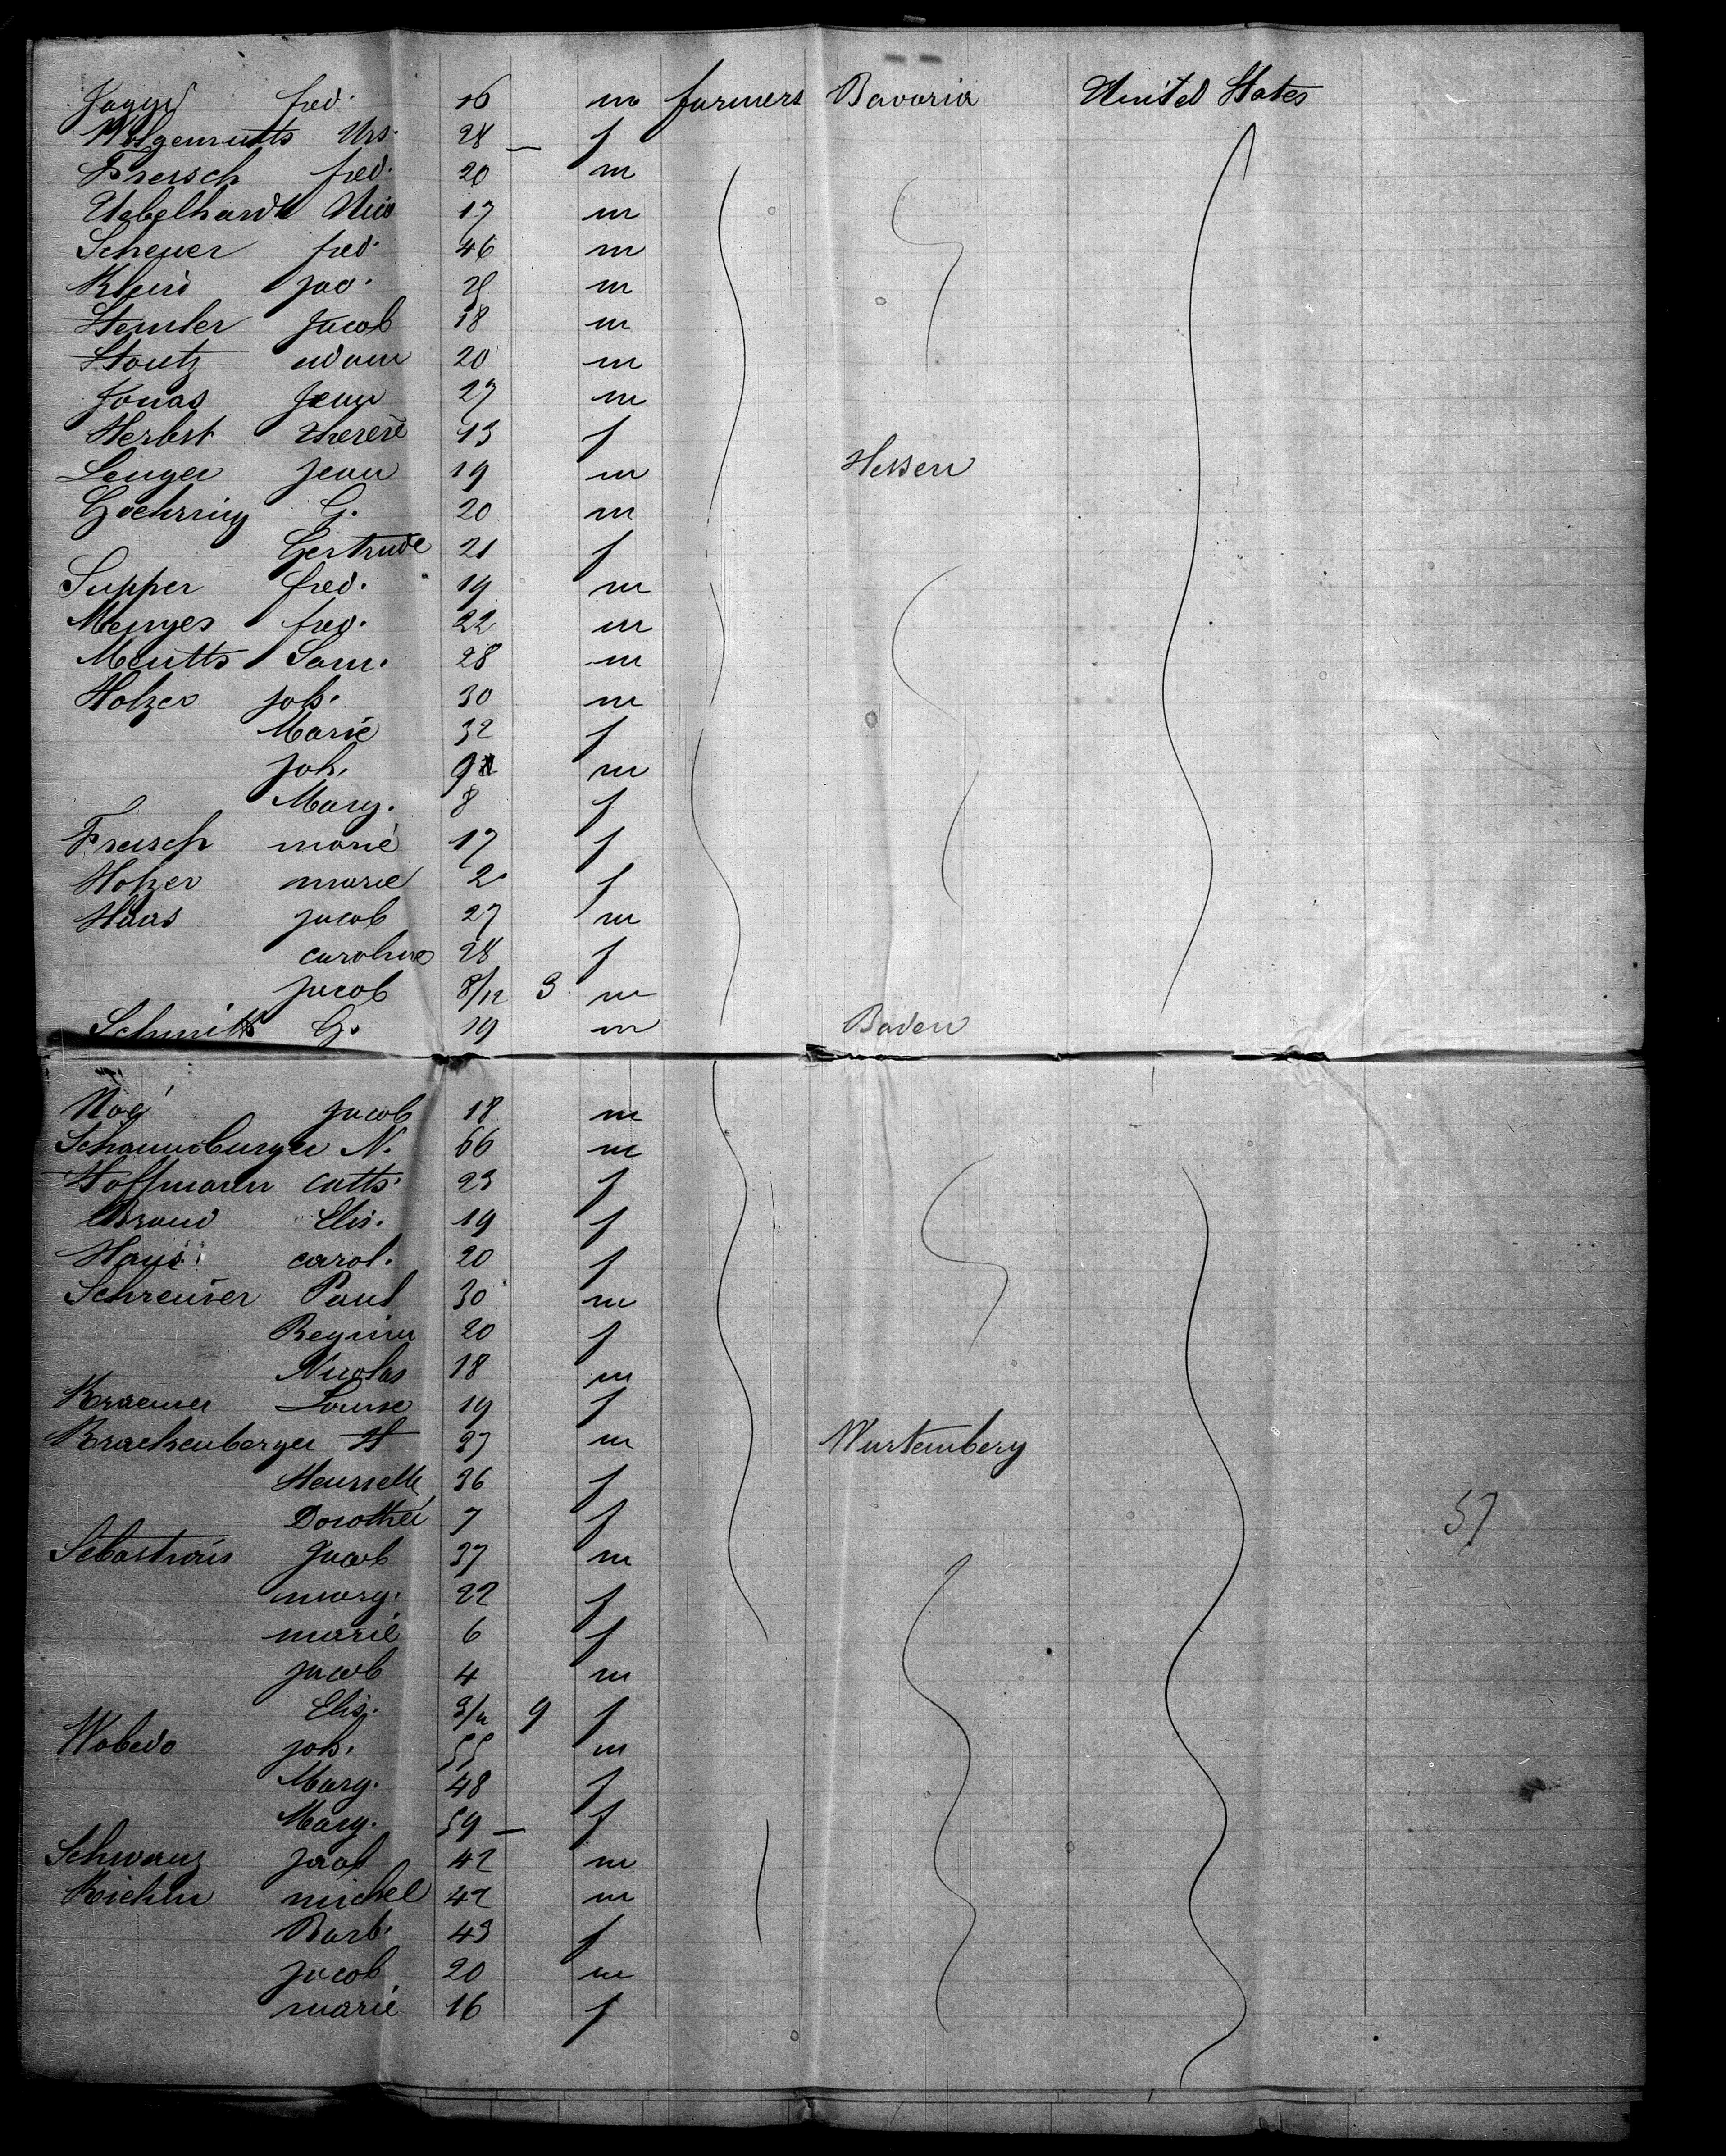 fred. 16 m farmers Bavaria United States
Wolgemutts Urs. 28 — f
Frersch fred. 20 m
Uebelhardt 17 m
Scheuer fred. 46 m
Klein Jac. m
Stemler Jacob 18 m
Stoutz adam 20 m
Jonas Jean 27 m
Herbst therese 13 f
Lenger Jean 19 m Hessen
Goehring G. 20 m
Gertrude 21 f
Supper fred. 19 m
Menges fred. 22 m
Mentts Sam. 28 m
Holzer joh. 30 m
Marie 32 f
joh. 9 m
Marg. 8 f
Freisch marie 17 f
Holzer marie 2 f
Haas jacob 27 m
caroline 28 f
jacob 8/12 3 m
Schmitt G. 19 m Baden
Noé jacob 18 m
Schaumburger N. 66 m
Hoffmann catts. 23 f
Braun Elis. 19 f
Haus carol. 20 f
Schreiner Paul 30 m
Regina 20 f
Nicolas 18 m
Kraemer Louise 19 f
Brachenberger H 37 m Wurtemberg
36 f
Dorothea 7 f
Sebastians Jacob 37 m
marg. 22 f
marie 6 f
57
jacob 4 m
Elis. 9 f
Wobedo joh. 55 m
Marg. 48 f
Marg. 59 — f
Schwanz Jacob 42 m
Kiehm michel 42 m
Barb. 43 f
jacob 20 m
marie 16 f